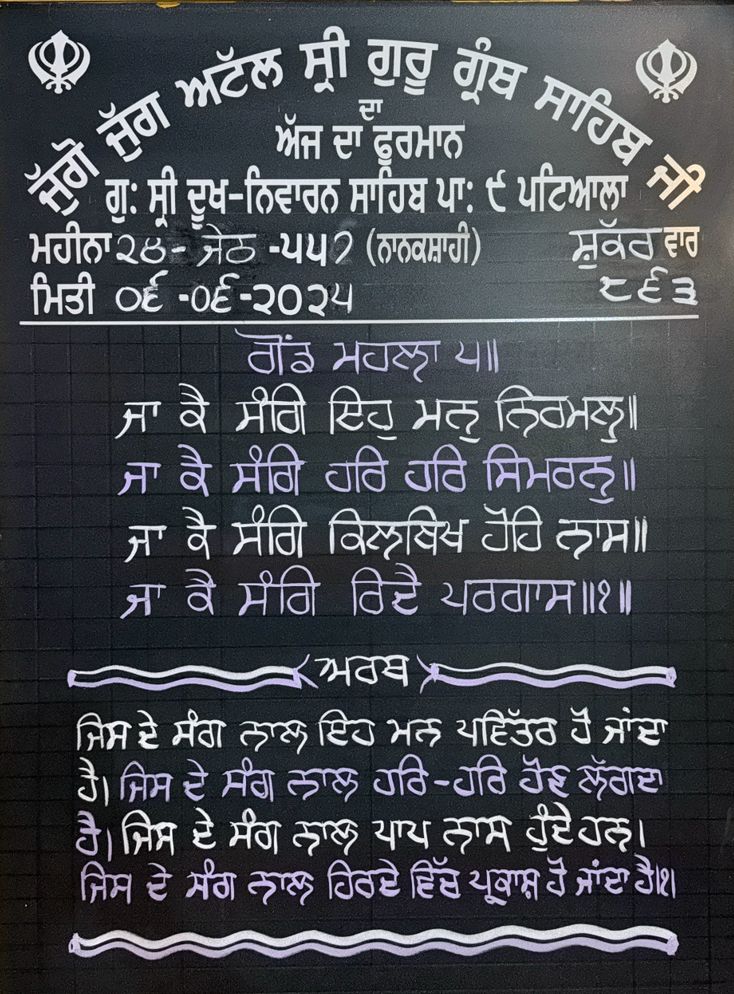 ਜੁੱਗੋ ਜੁੱਗ ਅਟੱਲ ਸ੍ਰੀ ਗੁਰੂ ਗ੍ਰੰਥ ਸਾਹਿਬ ਜੀ
ਦਾ
ਅੱਜ ਦਾ ਫੂਰਮਾਨ
ਗੁ: ਸ੍ਰੀ ਦੂਖ-ਨਿਵਾਰਨ ਸਾਹਿਬ ਪਾ: ੯ ਪਟਿਆਲਾ
ਮਹੀਨਾ ੨੪- ਜੇਠ -੫੫੭ (ਨਾਨਕਸ਼ਾਹੀ) ਸ਼ੁਕੱਰ ਵਾਰ
ਮਿਤੀ ੦੬ -੦੬-੨੦੨੫ ੮੬੩
ਗੋਂਡ ਮਹਲਾ ੫॥
ਜਾ ਕੈ ਸੰਗਿ ਇਹੁ ਮਨੁ ਨਿਰਮਲੁ॥
ਜਾ ਕੈ ਸੰਗਿ ਹਰਿ ਹਰਿ ਸਿਮਰਨੁ॥
ਜਾ ਕੈ ਸੰਗਿ ਕਿਲਬਿਖ ਹੋਹਿ ਨਾਸ॥
ਜਾ ਕੈ ਸੰਗਿ ਰਿਦੈ ਪਰਗਾਸ॥੧॥
ਅਰਥ
ਜਿਸ ਦੇ ਸੰਗ ਨਾਲ ਇਹ ਮਨ ਪਵਿੱਤਰ ਹੋ ਜਾਂਦਾ
ਹੈ। ਜਿਸ ਦੇ ਸੰਗ ਨਾਲ ਹਰਿ-ਹਰਿ ਹੋਣ ਲੱਗਦਾ
ਹੈ। ਜਿਸ ਦੇ ਸੰਗ ਨਾਲ ਪਾਪ ਨਾਸ ਹੁੰਦੇ ਹਨ।
ਜਿਸ ਦੇ ਸੰਗ ਨਾਲ ਹਿਰਦੇ ਵਿੱਚ ਪ੍ਰਕਾਸ਼ ਹੋ ਜਾਂਦਾ ਹੈ।੧।